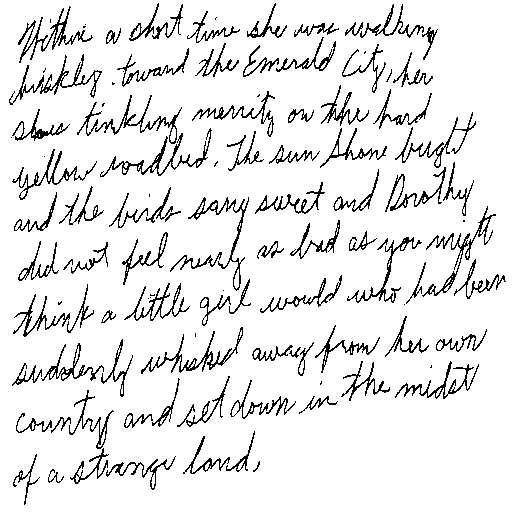 Within a short time she was walking
briskley toward the Emerald City, her
shoes tinkling merrity on thhe hard
yellow roadbed. The sun shone bright
and the birds sang sweet and Dorothy
did not feel nearly as bad as you might
think a little girl would who had been
suddenly whisked away from her own
country and set down in the midst
of a strange land,